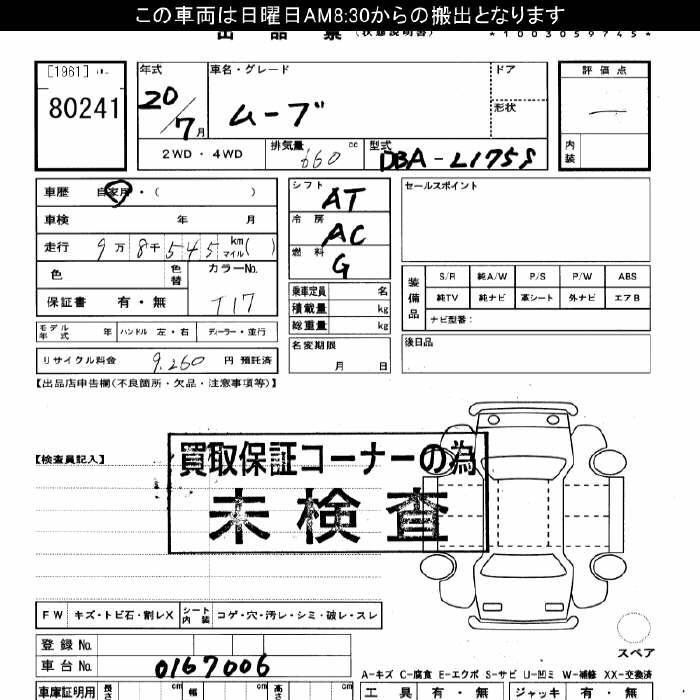 この車両は日曜日AM8:30からの搬出となります
出品票 (状態説明書)
*1003059745*
[1961]
80241
年式 20/7月
車名・グレード ムーブ
ドア
形状
2WD・4WD
排気量 660 cc
型式 DBA-L175S
評価点 —
内装
車歴 自家用・( )
車検 年 月
走行 9万8千545 km マイル( )
色
色替
カラーNo. T17
保証書 有・無
モデル年式 年
ハンドル 左・右
ディーラー・並行
リサイクル料金 9,260 円 預託済
シフト AT
冷房 AC
燃料 G
乗車定員 名
積載量 kg
総重量 kg
名変期限
月 日
セールスポイント
装備品
S/R 純A/W P/S P/W ABS
純TV 純ナビ 革シート 外ナビ エアB
ナビ型番:
後日品
【出品店申告欄(不良箇所・欠品・注意事項等)】
【検査員記入】
買取保証コーナーの為
未検査
FW キズ・トビ石・割レX
シート内装 コゲ・穴・汚レ・シミ・破レ・スレ
登録No.
車台No. 0167006
スペア
A-キズ C-腐食 E-エクボ S-サビ U-凹ミ W-補修 XX-交換済
車庫証明用 長さ cm 幅 cm 高さ cm
工具 有・無 ジャッキ 有・無